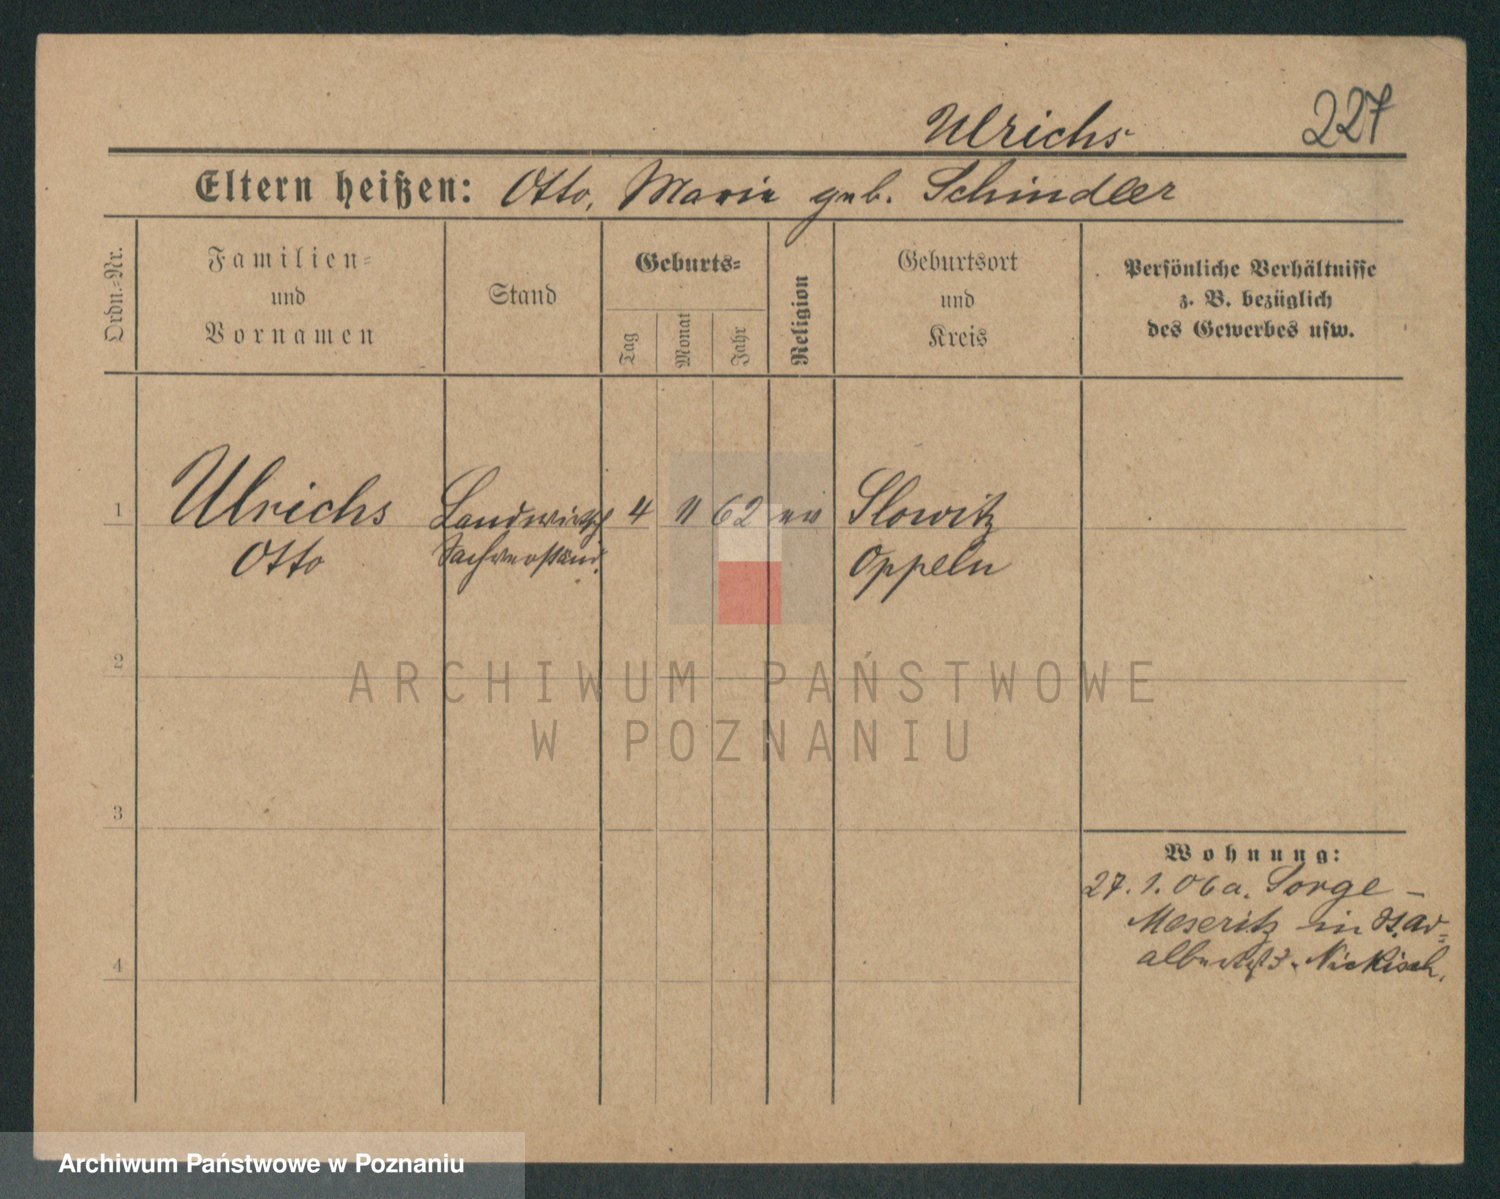 Ulrichs
227
Eltern heißen: Otto, Marie geb. Schindler
Ordn.-Nr.
Familien-
und
Vornamen
Stand
Geburts-
Tag
Monat
Jahr
Religion
Geburtsort
und
Kreis
Persönliche Verhältnisse
z. B. bezüglich
des Gewerbes usw.
1
Ulrichs
Otto
Landwirtsch
Sachverständ.
4
11
62
ev
Slowitz
Oppeln
2
ARCHIWUM PAŃSTWOWE
W POZNANIU
3
Wohnung:
27. 1. 06 a. Sorge -
Meseritz in
3. Nickisch.
4
Archiwum Państwowe w Poznaniu